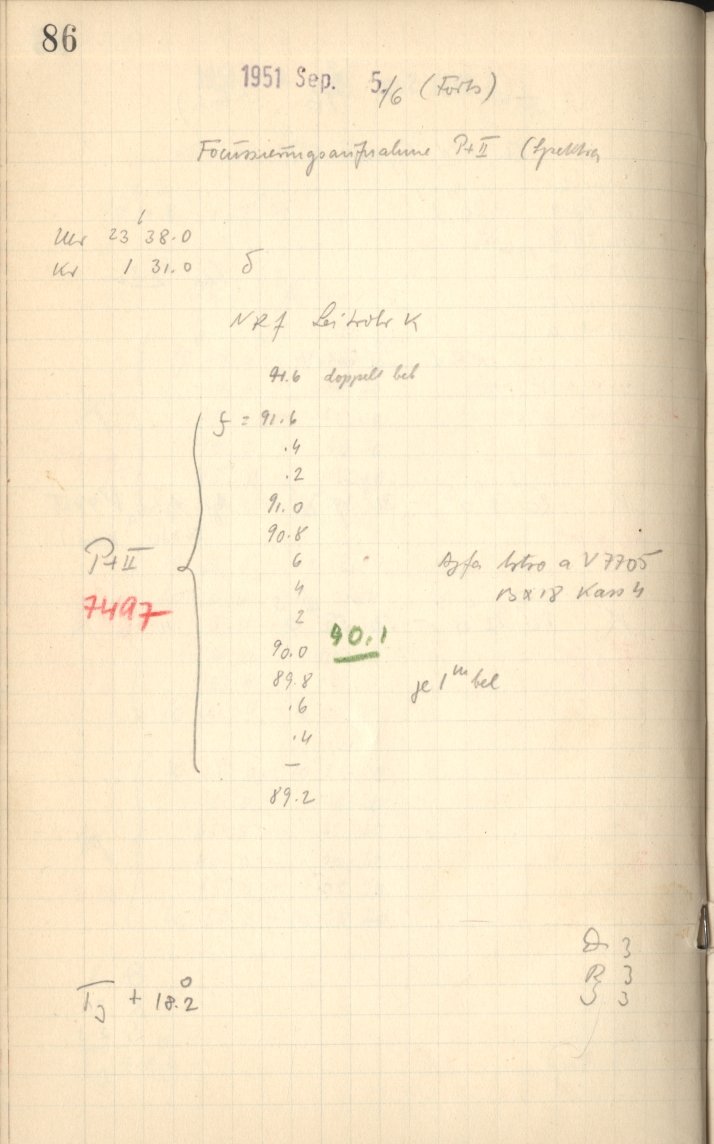 86
1951 Sep. 5./6 (Forts)
Focussierungsaufnahme P+II (Spektra
Uhr 23 38.0
Kr 1 31.0 δ
NRf Leitrohr K
91.6 doppelt bel
f = 91.6
.4
.2
91.0
90.8
P+II 6 Agfa Astro a V 7705
4 13 x 18 Kass 4
7497 2
90.0 90.1
89.8 je 1 m bel
.6
.4
–
89.2
3
R 3
T + 18.2° S 3